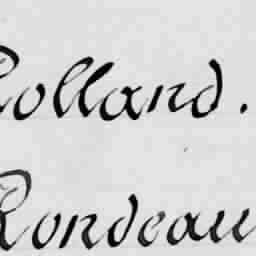 Rolland.
Rondeau